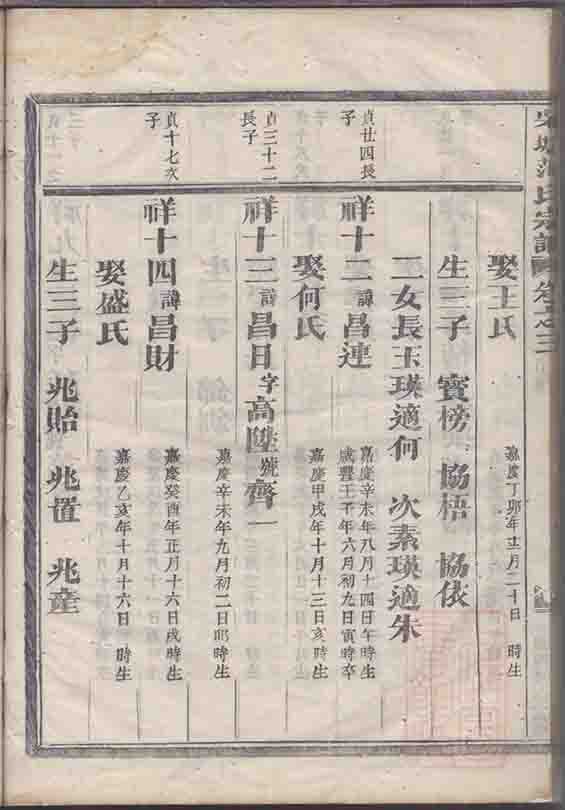 范氏宗譜 卷之三
娶王氏 嘉慶丁卯年十二月二十日 時生
生三子 賓榜 協梧 協依
二女長玉瑛適何 次素瑛適朱
貞廿四長子
祥十二諱昌連 嘉慶辛未年八月十四日午時生
咸豐壬子年六月初九日寅時卒
娶何氏 嘉慶甲戌年十月十三日亥時生
貞三十二長子
祥十三諱昌日字高陞號齊一 嘉慶辛未年九月初二日卯時生
貞十七次子
祥十四諱昌財 嘉慶癸酉年正月十六日戌時生
娶盛氏 嘉慶乙亥年十月十六日 時生
生三子 兆貽 兆置 兆產